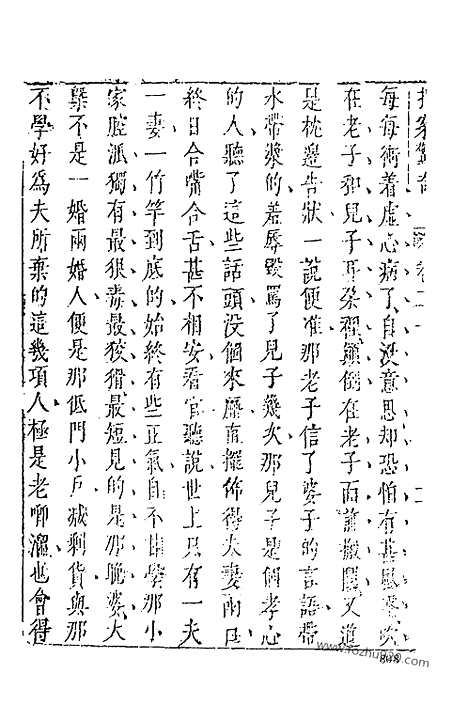 拍案驚奇 卷二十
每每衝着虛心病了自沒意思却恐怕有甚風聲吹
在老子和兒子耳朶裡顛倒在老子面前搬鬬又道
是枕邊告狀一說便准那老子信了婆子的言語帶
水帶漿的羞辱毀罵了兒子幾次那兒子是個孝心
的人聽了這些話頭没個來歷直擺佈得夫妻兩口
終日合嘴合舌甚不相安看官聽說世上只有一夫
一妻一竹竿到底的始終有些正氣自不甘學那小
家腔派獨有最狠毒最狡猾最短見的是那晚婆大
槩不是一婚兩婚人便是那低門小戶减剩貨與那
不學好為夫所棄的這幾項人極是老唧溜也會得
www.fozhu920.com
808